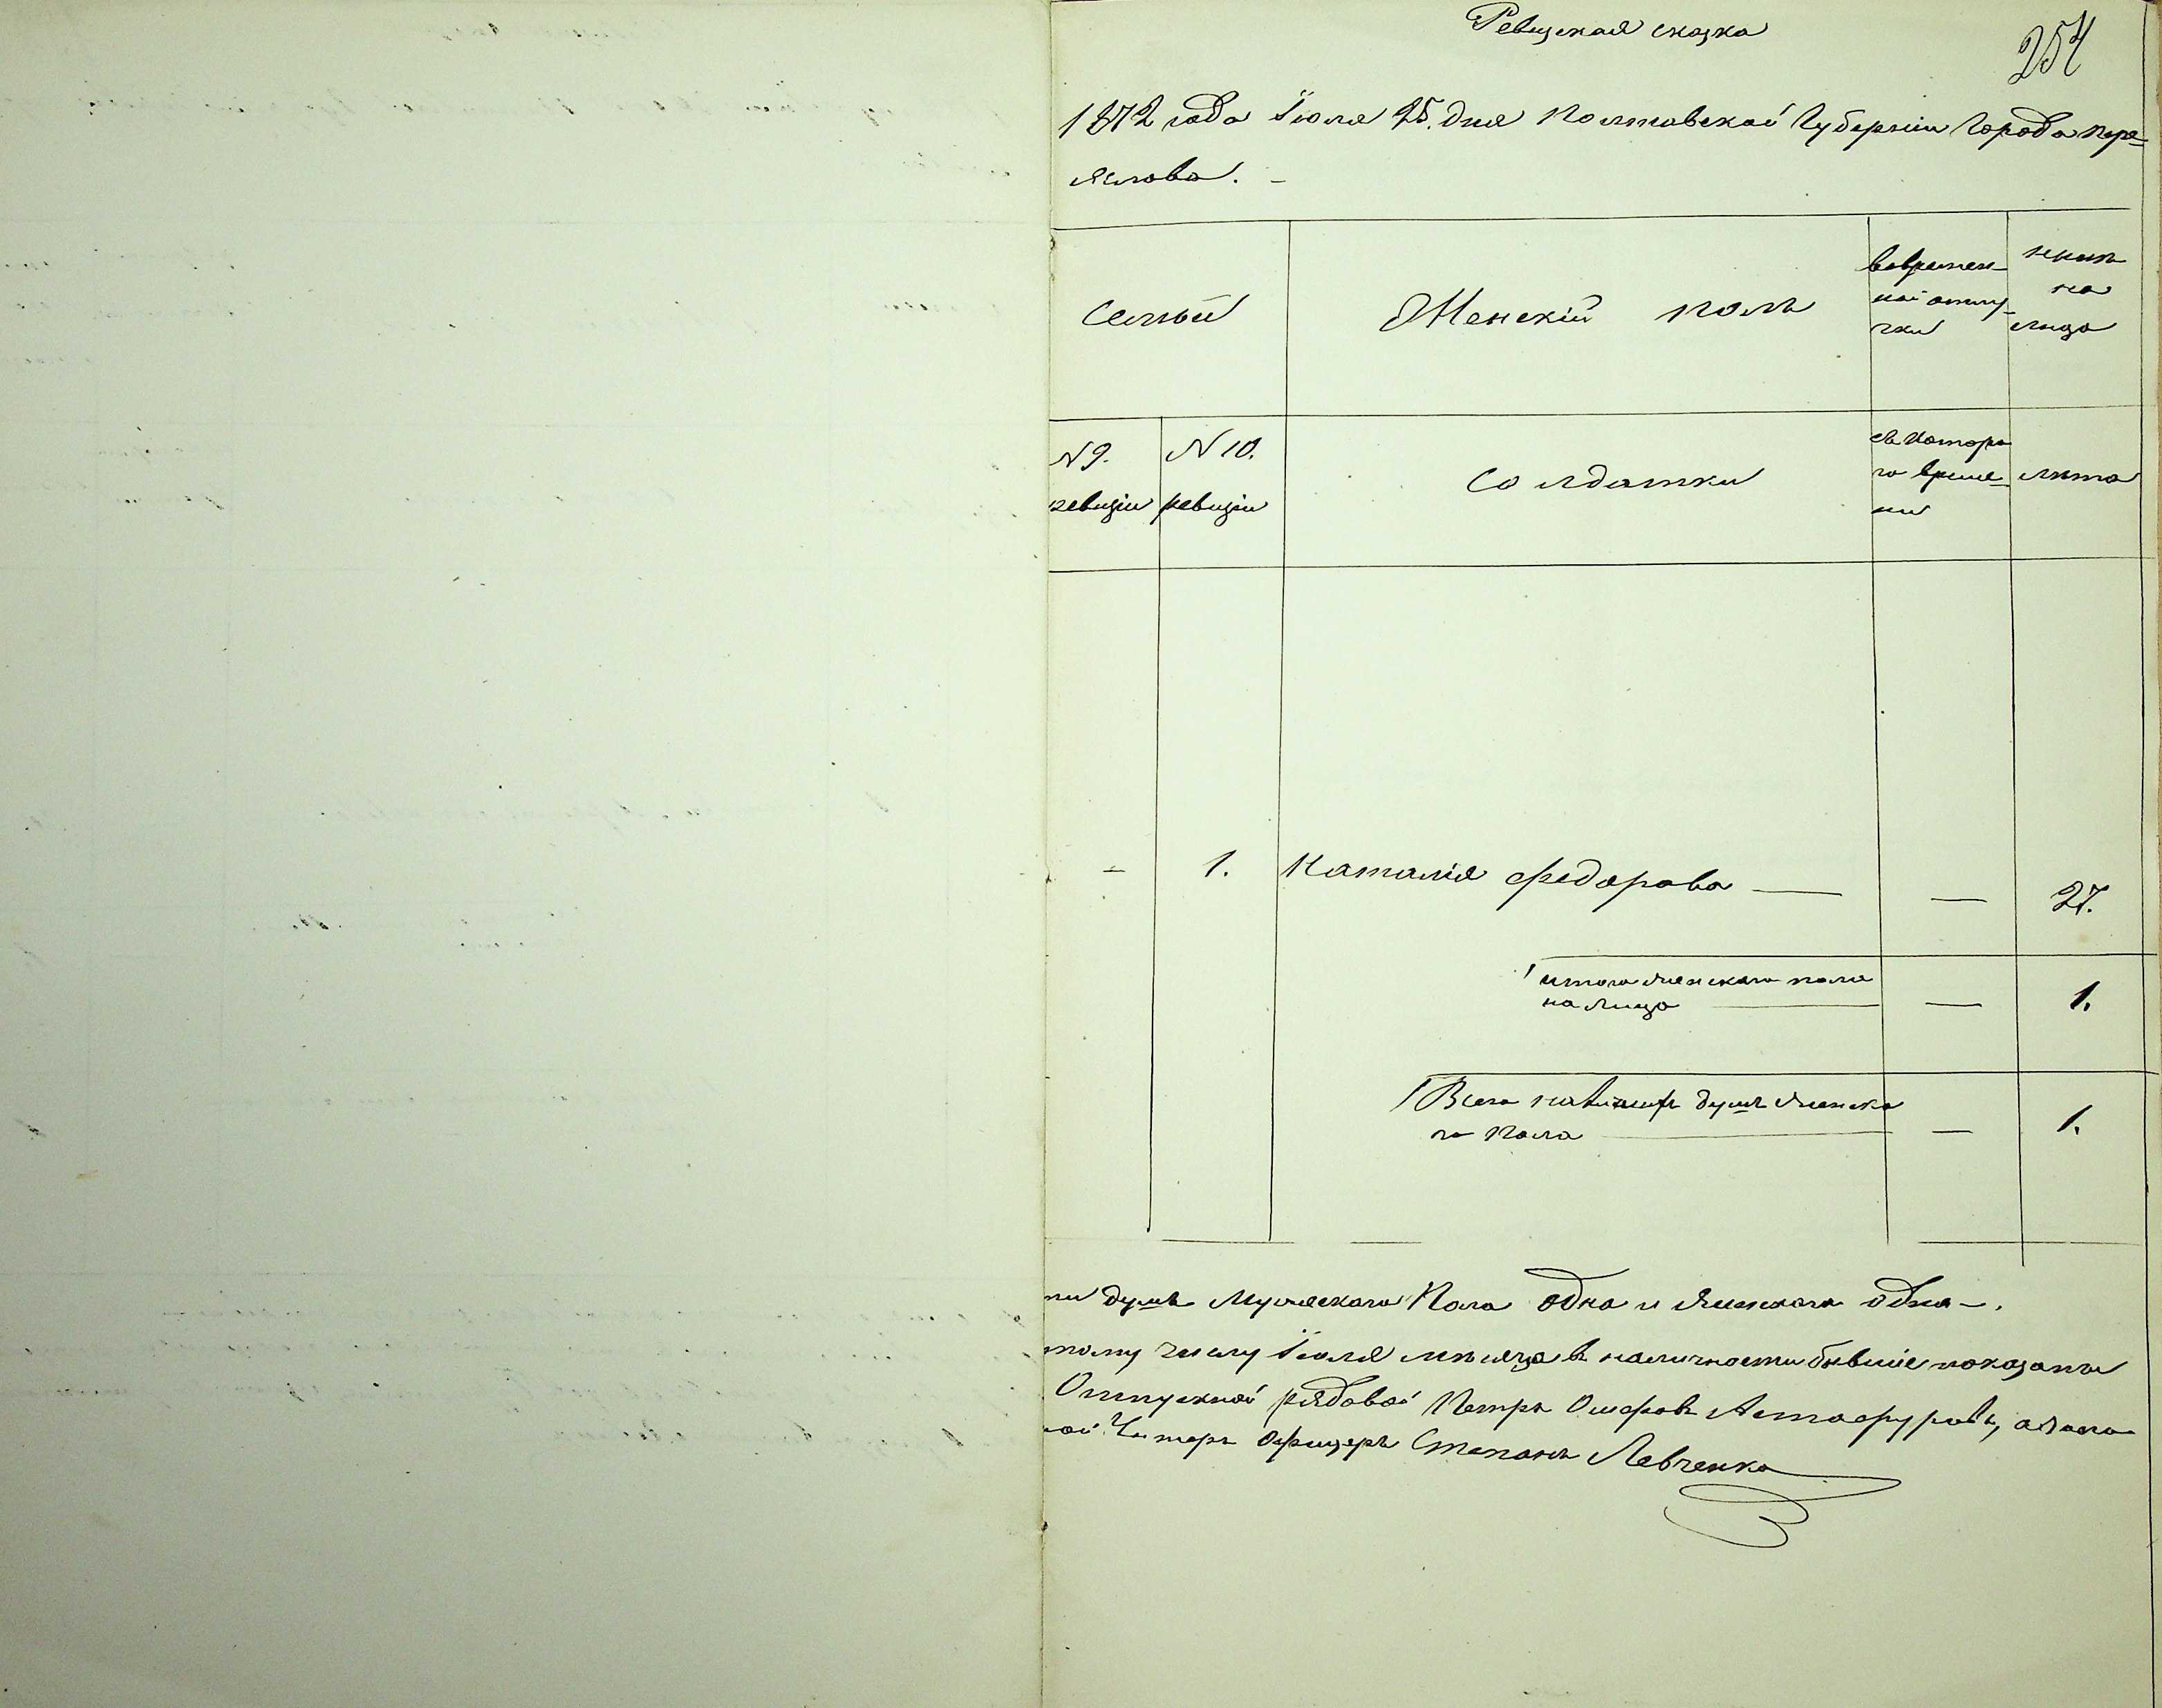 Ревизская сказка
254
1872 года Іюля 25. дня Полтавской Губерніи Города пере-
яслова. -
Семьи
Женскій полъ
вовремен-
ной отлу-
чки
нынѣ
на
лицо
N 9.
ревизіи
N 10.
ревизіи
Солдатки
съ котора
го време-
ни
лѣта
- 1. Наталія Федорова — — 27.
итого женскаго пола
на лицо — — 1.
Всего налицо душъ женска
го пола — — 1.
ти душъ Мужескаго Пола одна и женскаго одна -.
тому числу Іюля мѣсяца въ наличности бывшіе показаны
Отпускной рядовой Петръ
Унтеръ офицеръ Степанъ Левченко